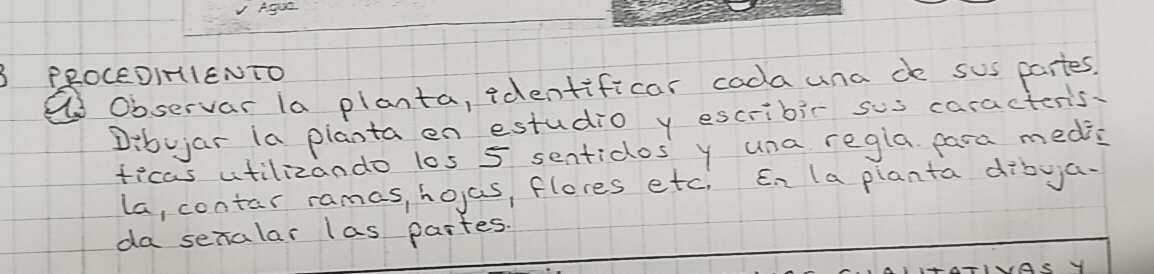 ✓ Agua
3 PROCEDIMIENTO
a) Observar la planta, identificar cada una de sus partes.
Dibujar la planta en estudio y escribir sus caracterís-
ticas utilizando los 5 sentidos y una regla para medir
la, contar ramas, hojas, flores etc. En la planta dibuja-
da señalar las partes.
CUALITATIVAS Y